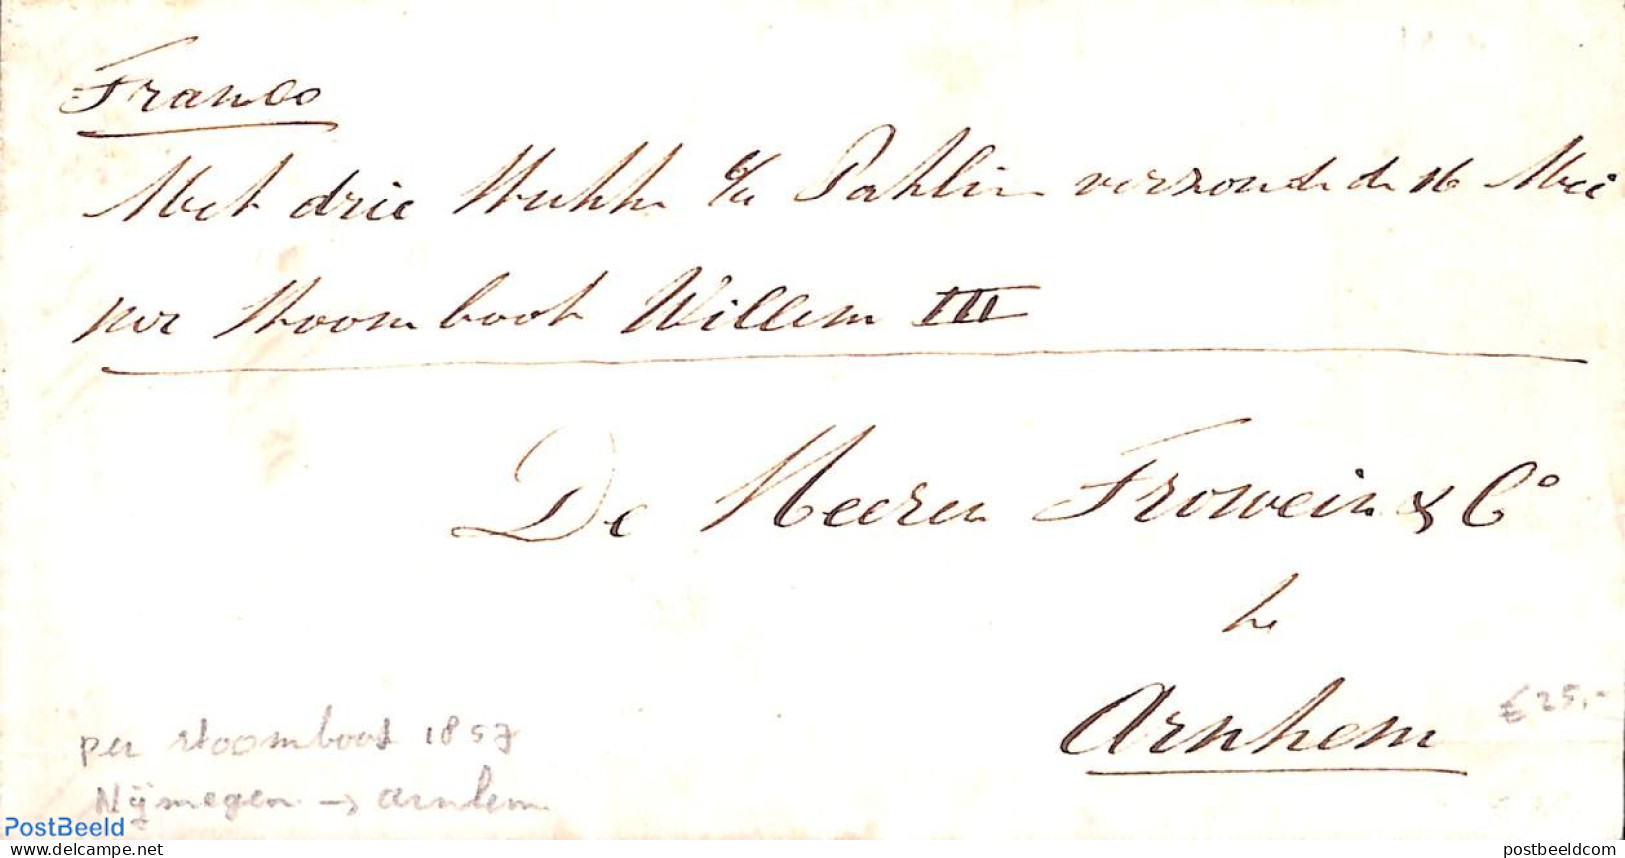 Franco
Met drie Stukke verzonden de 16 Mei
per Stoomboot Willem III
De Heeren Frowein & Co
te
Arnhem
€25,-
per stoomboot 1857
Nijmegen → arnhem
PostBeeld
www.postbeeld.com
postbeeldcom